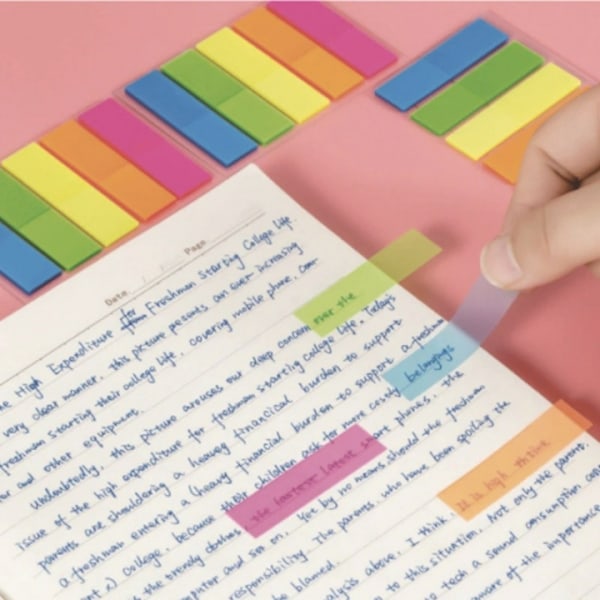 Date Page
The High Expenditure for Freshman Starting College Life.
very clear manner, this picture presents an ever-increasing
freshman starting their college life, covering mobile phone, com
and other equipment.
undoubtedly, this picture arouses our deep concern over the
issue of the high expenditure for freshmen starting college life. Today's
parents are shouldering a heavy financial burden to support
a freshman entering a (heavy financial burden to support a freshman
) college, because their children ask for more costly belongings
the trendy clothes, the lastest latest smart phones, the
and so on. Yet by no means should the freshmen
responsibility. The parents, who have been spoiling the
be blamed.
analysis above, I think, It is high thtime
to this situation. Not only the parents,
to teach a sound consumption
aware of the importance